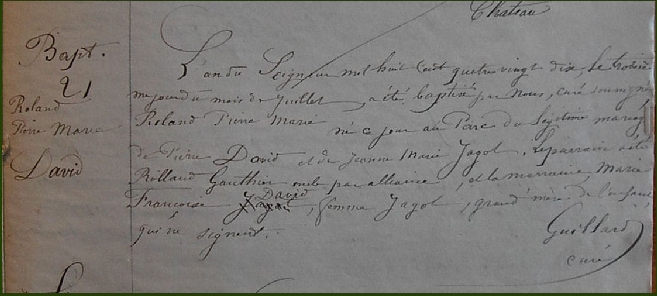 Château
Bapt.
21
Roland
Pierre Marie
David
L'an du Seigneur mil huit cent quatre vingt dix, le troisiè
me jour du mois de Juillet, a été baptisé par Nous, curé soussigné
Roland Pierre Marie né ce jour au Parc du légitime mariage
de Pierre David et de Jeanne Marie Jagot. Le parrain a été
Rolland Gauthier oncle par alliance, et la marraine Marie
David
Françoise Jagot, femme Jagot, grand'mère de l'enfant
qui ne signent.
Guillard
curé